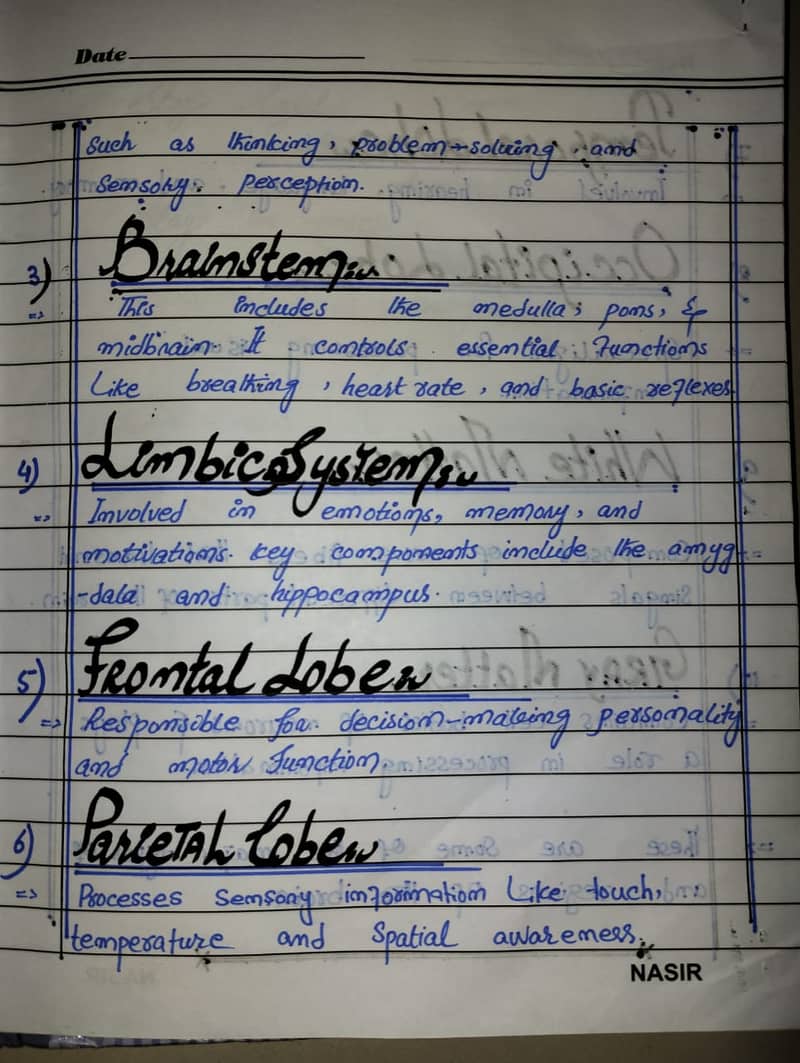 Date
Such as thinking, problem-solving, and
Sensory. perception.
3) Brainstem:~
=> This includes the medulla, pons, &
midbrain. It controls essential functions
Like breathing, heart rate, and basic reflexes
4) Limbic System:~
=> Involved in emotions, memory, and
motivations. key components include the amyg
-dala and hippocampus.
5) Frontal Lobe:~
=> Responsible for decision-making personality
and motor function.
6) Parietal Lobe:~
=> Processes sensory information Like touch,
temperature and Spatial awareness.
NASIR